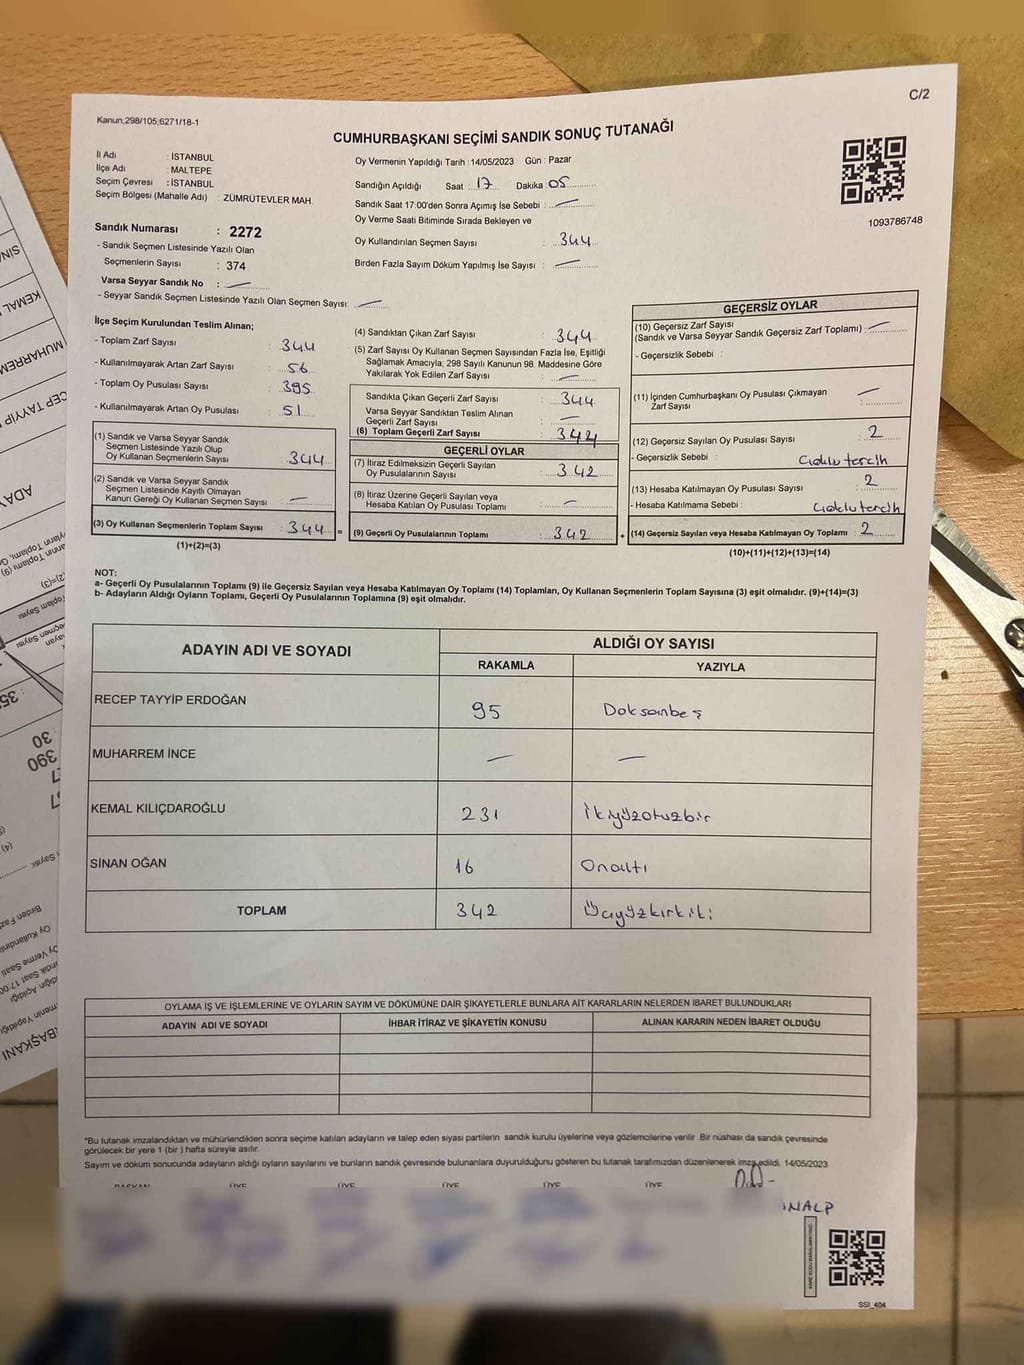 C/2
Kanun;298/105;6271/18-1
CUMHURBAŞKANI SEÇİMİ SANDIK SONUÇ TUTANAĞI
İl Adı : İSTANBUL
İlçe Adı : MALTEPE
Seçim Çevresi : İSTANBUL
Seçim Bölgesi (Mahalle Adı) : ZÜMRÜTEVLER MAH.
Sandık Numarası : 2272
- Sandık Seçmen Listesinde Yazılı Olan
Seçmenlerin Sayısı : 374
Varsa Seyyar Sandık No : —
- Seyyar Sandık Seçmen Listesinde Yazılı Olan Seçmen Sayısı: —
Oy Vermenin Yapıldığı Tarih :14/05/2023 Gün : Pazar
Sandığın Açıldığı Saat : 17 Dakika : 05
Sandık Saat 17:00'den Sonra Açımış İse Sebebi : —
Oy Verme Saati Bitiminde Sırada Bekleyen ve
Oy Kullandırılan Seçmen Sayısı : 344
Birden Fazla Sayım Döküm Yapılmış İse Sayısı : —
1093786748
İlçe Seçim Kurulundan Teslim Alınan;
- Toplam Zarf Sayısı : 344
- Kullanılmayarak Artan Zarf Sayısı : 56
- Toplam Oy Pusulası Sayısı : 395
- Kullanılmayarak Artan Oy Pusulası : 51
(1) Sandık ve Varsa Seyyar Sandık
Seçmen Listesinde Yazılı Olup
Oy Kullanan Seçmenlerin Sayısı : 344
(2) Sandık ve Varsa Seyyar Sandık
Seçmen Listesinde Kayıtlı Olmayan
Kanun Gereği Oy Kullanan Seçmen Sayısı : —
(3) Oy Kullanan Seçmenlerin Toplam Sayısı : 344 =
(1)+(2)=(3)
(4) Sandıktan Çıkan Zarf Sayısı : 344
(5) Zarf Sayısı Oy Kullanan Seçmen Sayısından Fazla İse, Eşitliği
Sağlamak Amacıyla; 298 Sayılı Kanunun 98. Maddesine Göre
Yakılarak Yok Edilen Zarf Sayısı : —
Sandıkta Çıkan Geçerli Zarf Sayısı : 344
Varsa Seyyar Sandıktan Teslim Alınan
Geçerli Zarf Sayısı : —
(6) Toplam Geçerli Zarf Sayısı : 344
GEÇERLİ OYLAR
(7) İtiraz Edilmeksizin Geçerli Sayılan
Oy Pusulalarının Sayısı : 342
(8) İtiraz Üzerine Geçerli Sayılan veya
Hesaba Katılan Oy Pusulası Toplamı : —
(9) Geçerli Oy Pusulalarının Toplamı : 342 +
GEÇERSİZ OYLAR
(10) Geçersiz Zarf Sayısı : —
(Sandık ve Varsa Seyyar Sandık Geçersiz Zarf Toplamı)
- Geçersizlik Sebebi :
(11) İçinden Cumhurbaşkanı Oy Pusulası Çıkmayan
Zarf Sayısı : —
(12) Geçersiz Sayılan Oy Pusulası Sayısı : 2
- Geçersizlik Sebebi : Çoklu tercih
(13) Hesaba Katılmayan Oy Pusulası Sayısı : 2
- Hesaba Katılmama Sebebi : Çoklu tercih
(14) Geçersiz Sayılan veya Hesaba Katılmayan Oy Toplamı : 2
(10)+(11)+(12)+(13)=(14)
NOT:
a- Geçerli Oy Pusulalarının Toplamı (9) ile Geçersiz Sayılan veya Hesaba Katılmayan Oy Toplamı (14) Toplamları, Oy Kullanan Seçmenlerin Toplam Sayısına (3) eşit olmalıdır. (9)+(14)=(3)
b- Adayların Aldığı Oyların Toplamı, Geçerli Oy Pusulalarının Toplamına (9) eşit olmalıdır.
ADAYIN ADI VE SOYADI ALDIĞI OY SAYISI
RAKAMLA YAZIYLA
RECEP TAYYİP ERDOĞAN 95 Doksanbeş
MUHARREM İNCE — —
KEMAL KILIÇDAROĞLU 231 İkiyüzotuzbir
SİNAN OĞAN 16 Onaltı
TOPLAM 342 Üçyüzkırkiki
OYLAMA İŞ VE İŞLEMLERİNE VE OYLARIN SAYIM VE DÖKÜMÜNE DAİR ŞİKAYETLERLE BUNLARA AİT KARARLARIN NELERDEN İBARET BULUNDUKLARI
ADAYIN ADI VE SOYADI İHBAR İTİRAZ VE ŞİKAYETİN KONUSU ALINAN KARARIN NEDEN İBARET OLDUĞU
*Bu tutanak imzalandıktan ve mühürlendikten sonra seçime katılan adayların ve talep eden siyasi partilerin sandık kurulu üyelerine veya gözlemcilerine verilir .Bir nüshası da sandık çevresinde
görülecek bir yere 1 (bir ) hafta süreyle asılır.
Sayım ve döküm sonucunda adayların aldığı oyların sayılarını ve bunların sandık çevresinde bulunanlara duyurulduğunu gösteren bu tutanak tarafımızdan düzenlenerek imza edildi. 14/05/2023
BAŞKAN ÜYE ÜYE ÜYE ÜYE ÜYE
SSİ_404